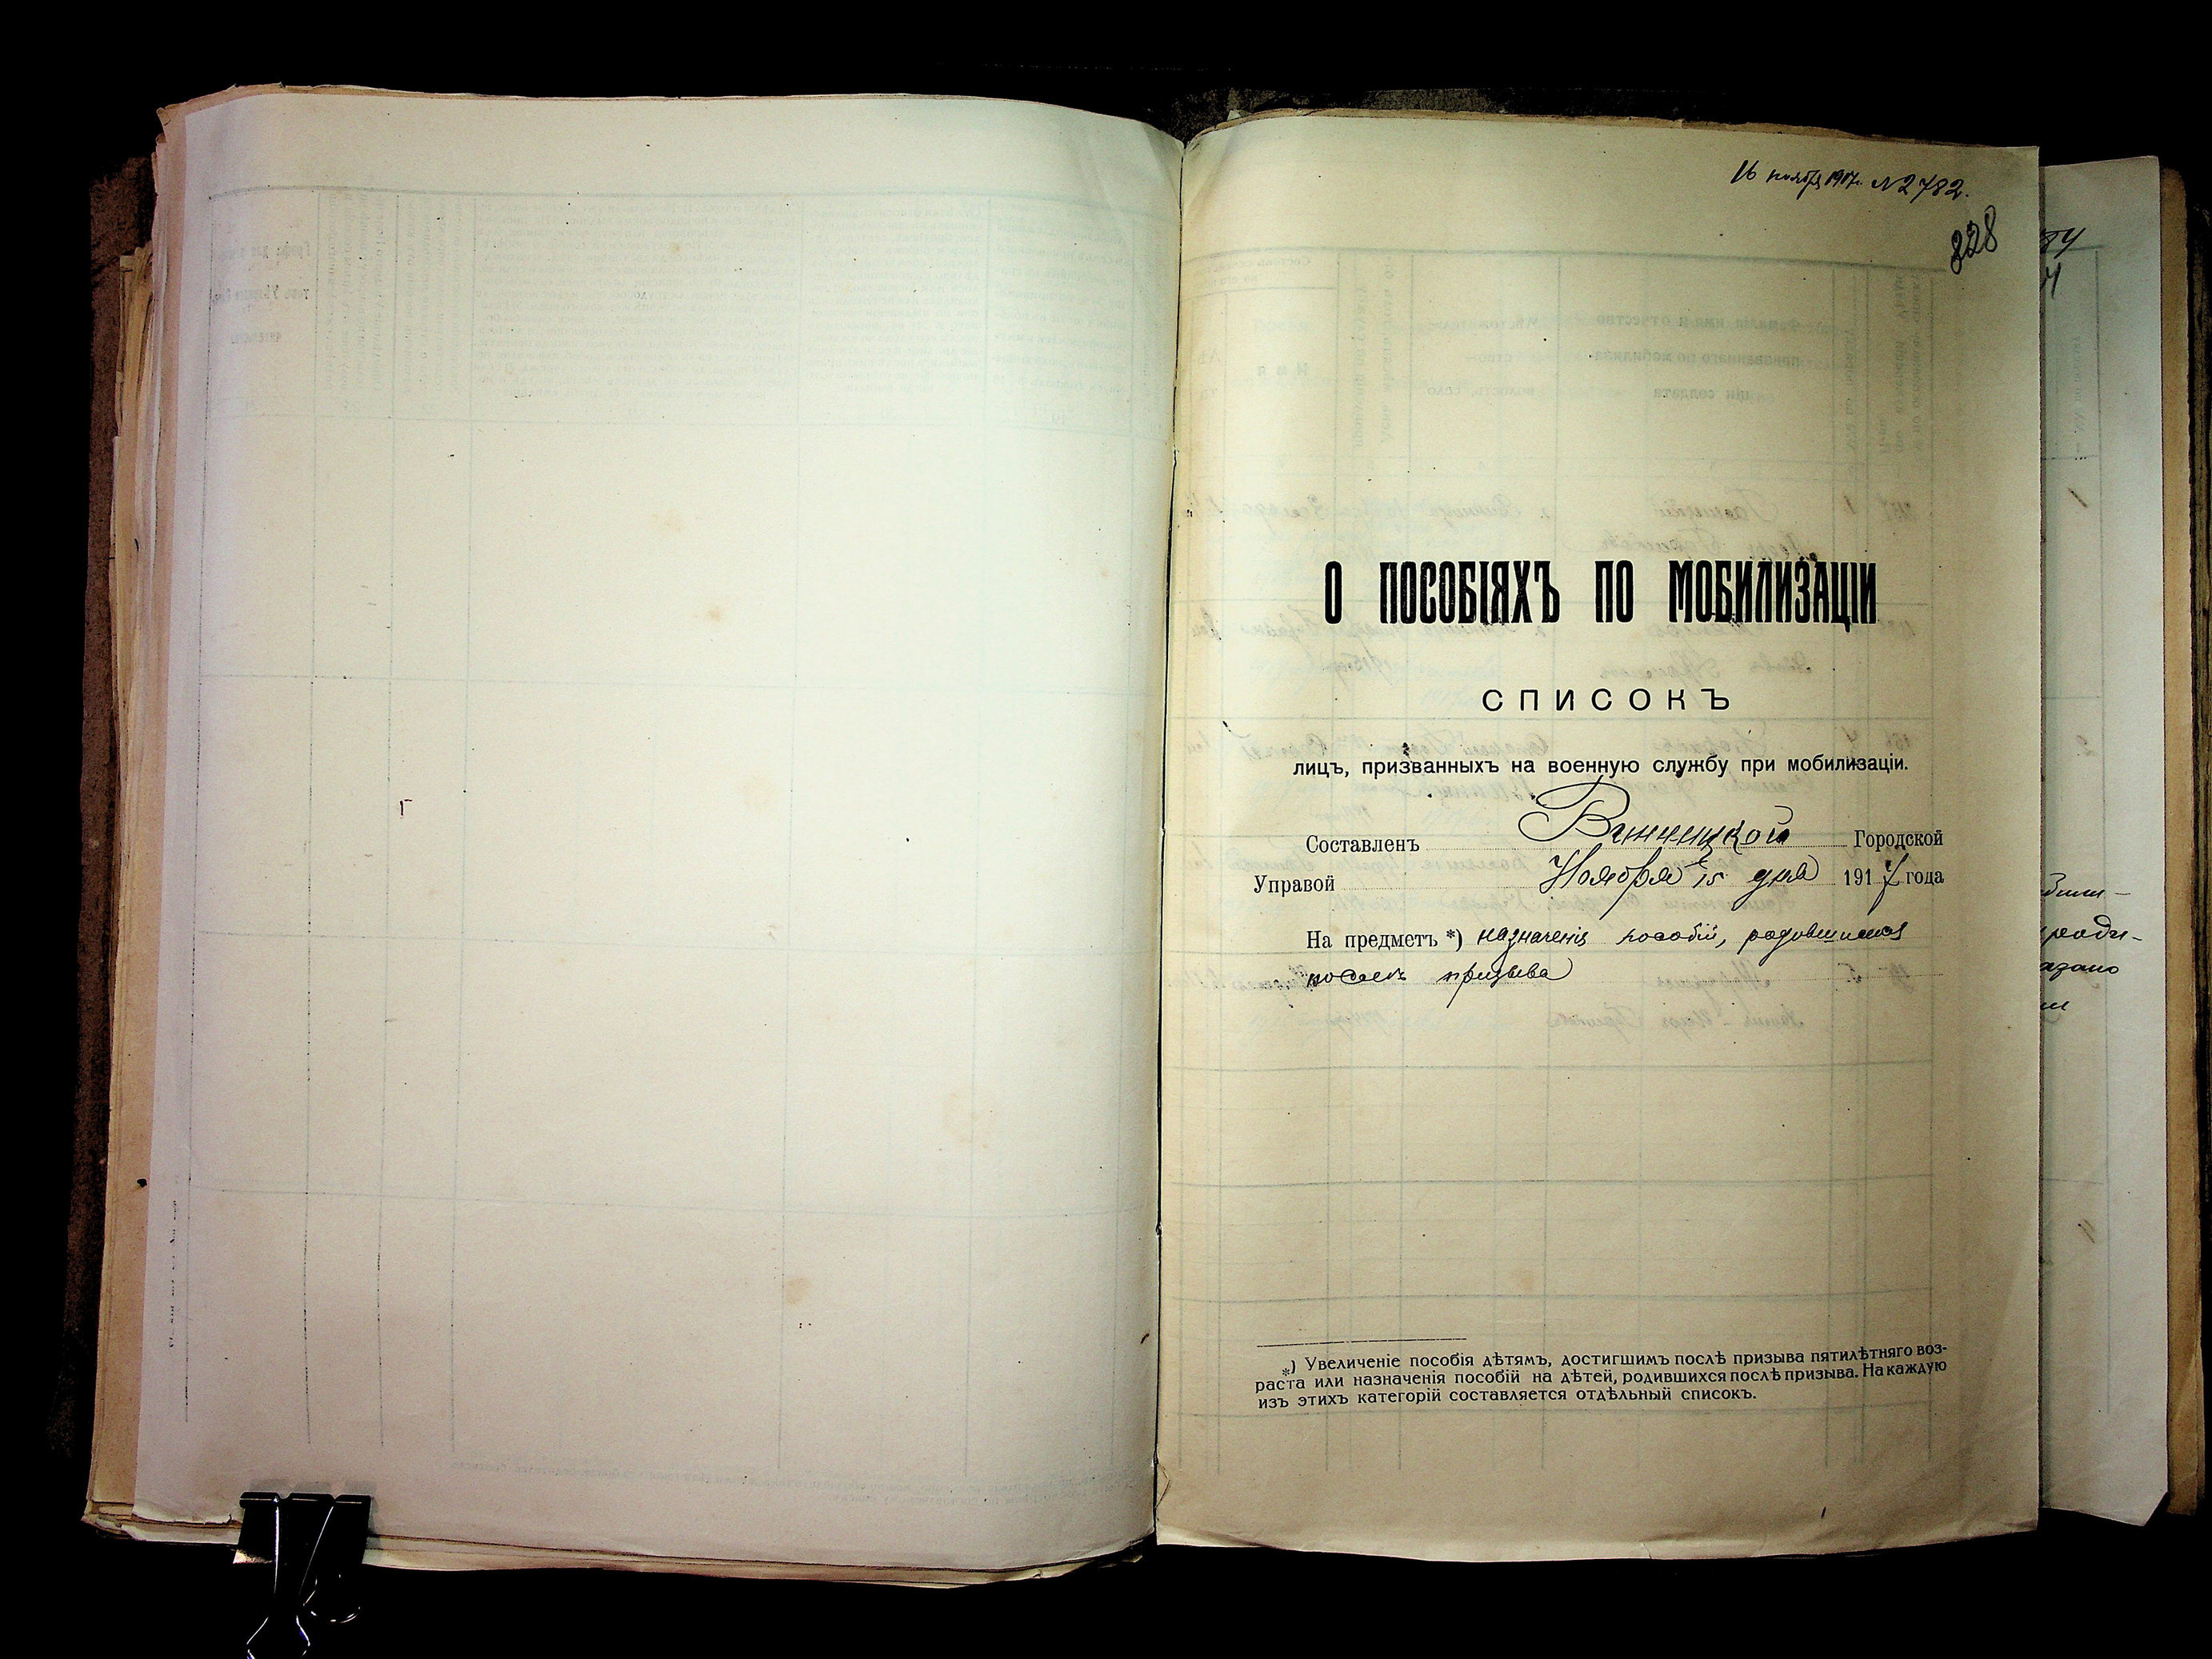 16 ноября 1917г. №2782.
828
О ПОСОБІЯХЪ ПО МОБИЛИЗАЦІИ
СПИСОКЪ
лицъ, призванныхъ на военную службу при мобилизаціи.
Составленъ Винницкой Городской
Управой Ноября 15 дня 1917 года
На предметъ *) назначенія пособій, родовшимся
послѣ призыва
*) Увеличеніе пособія дѣтямъ, достигшимъ послѣ призыва пятилѣтняго воз-
раста или назначенія пособій на дѣтей, родившихся послѣ призыва. На каждую
изъ этихъ категорій составляется отдѣльный списокъ.